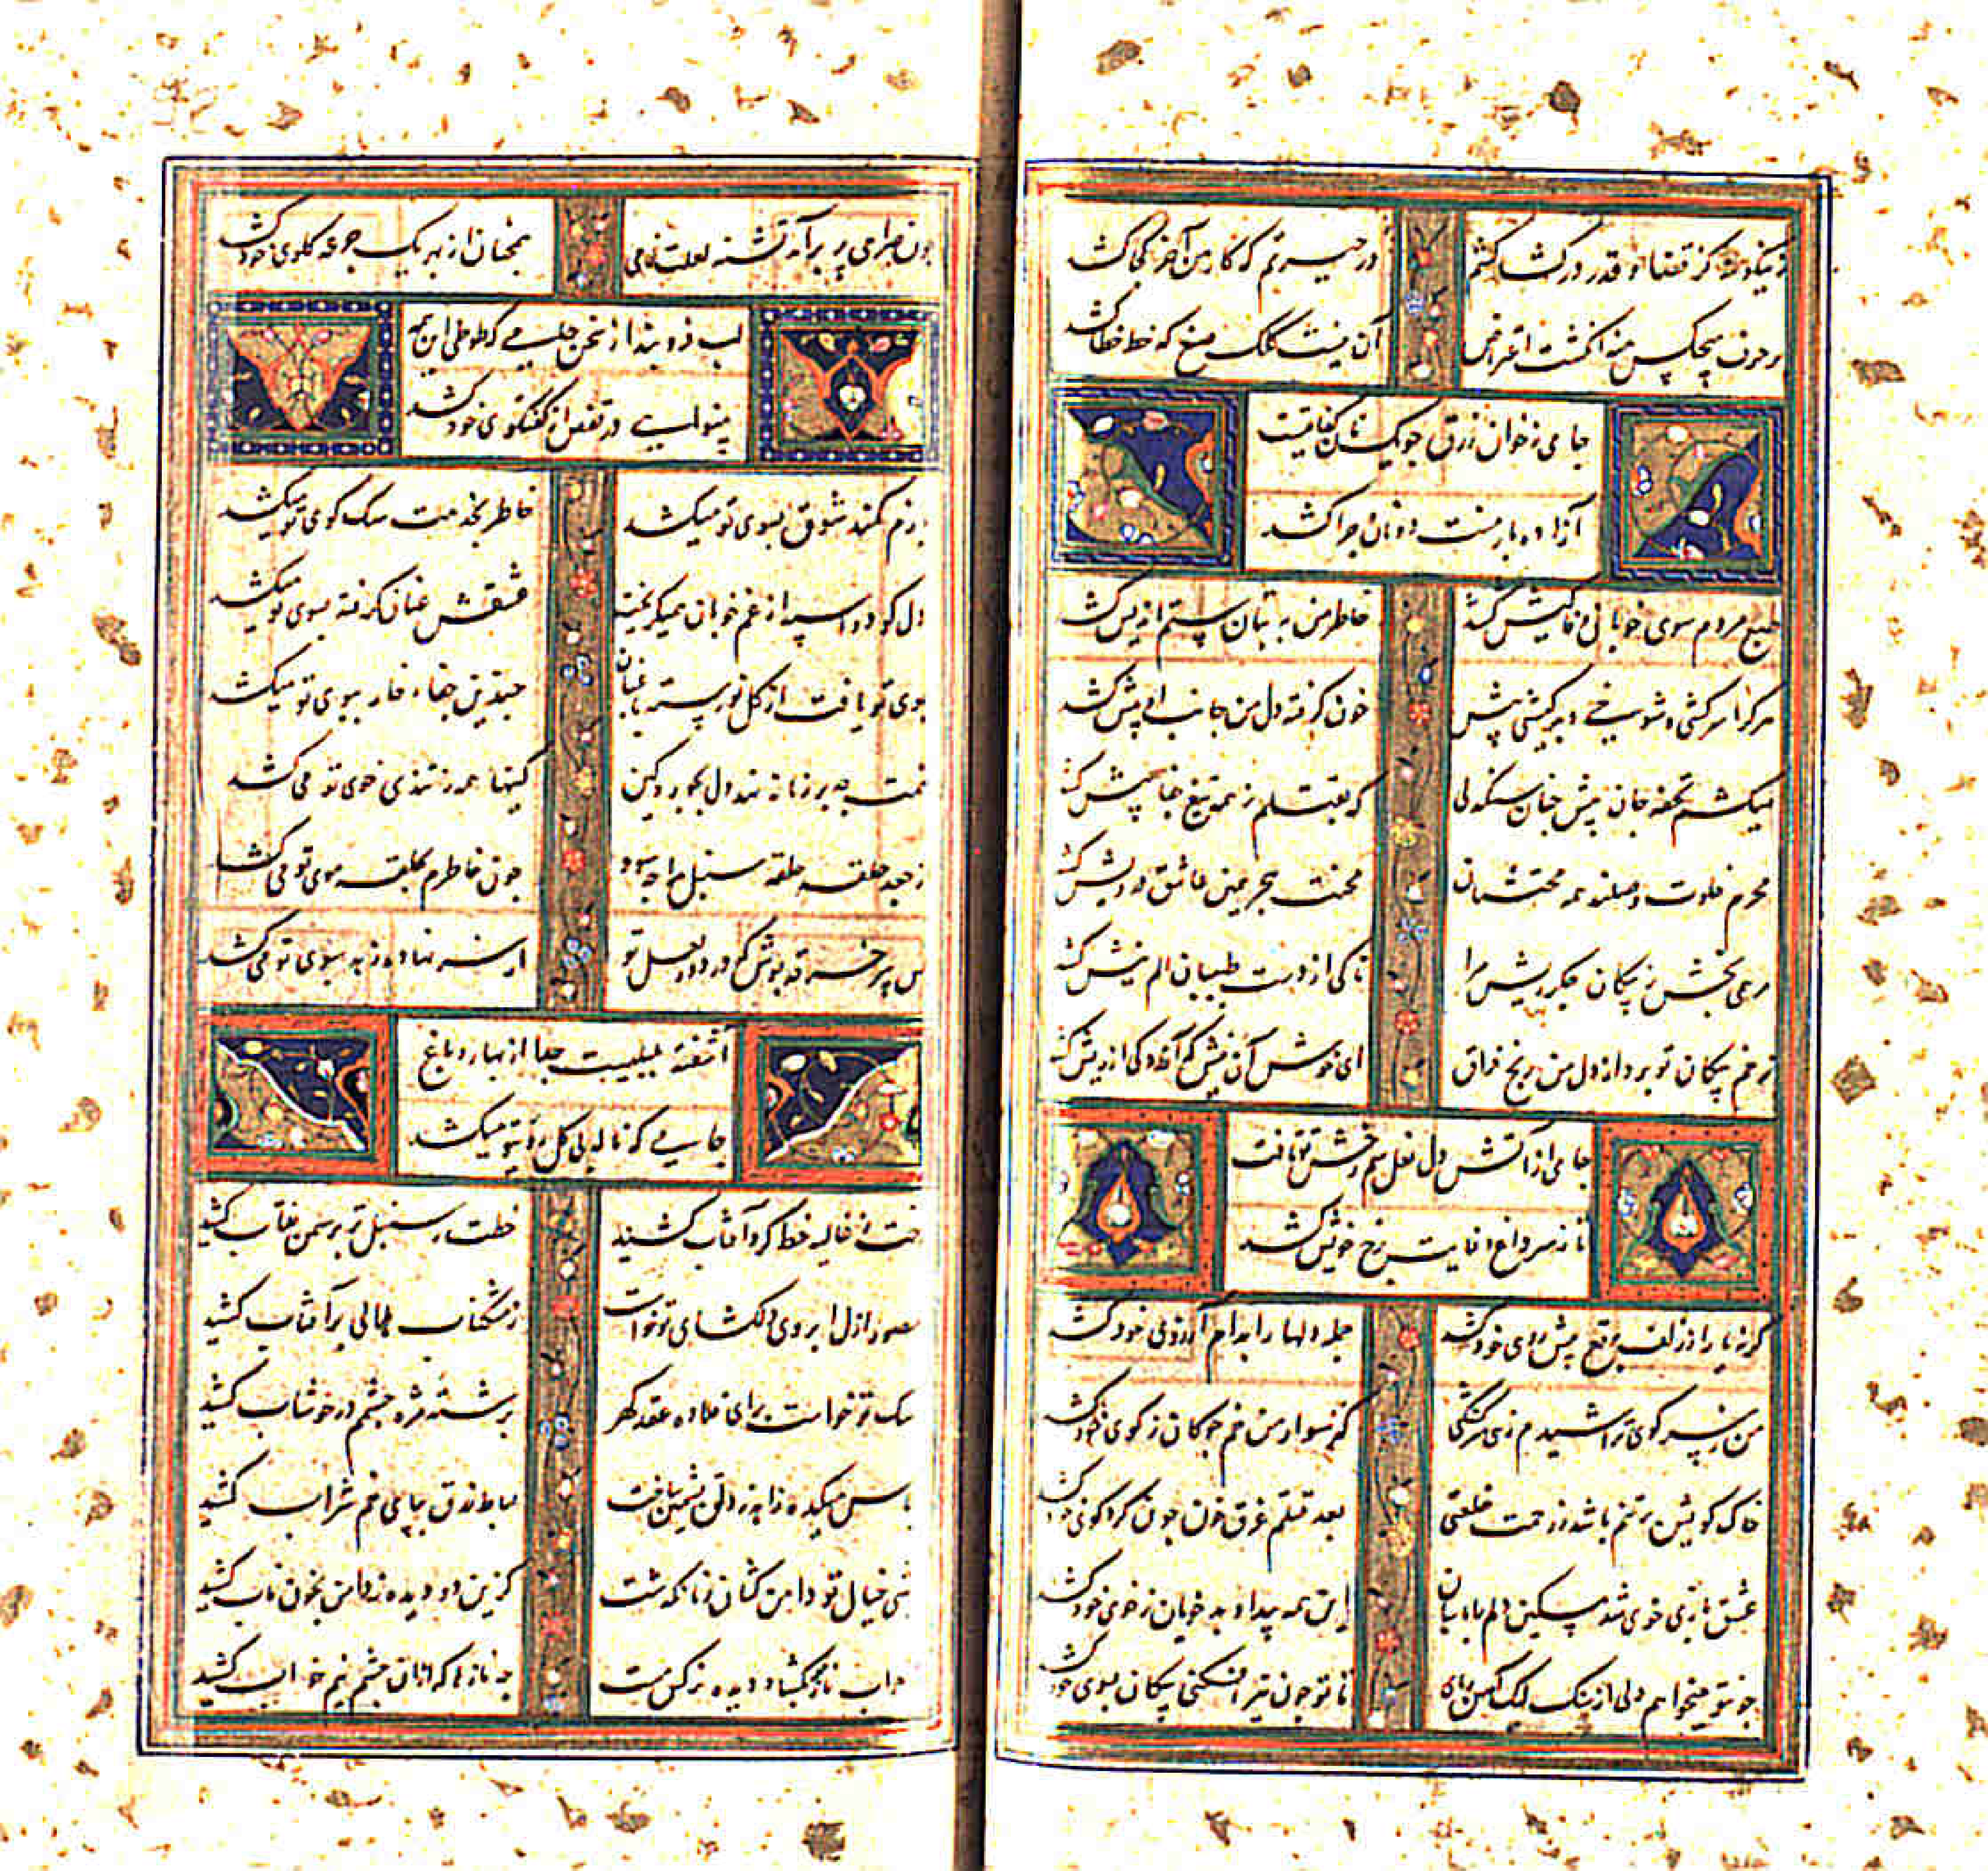 زینگونه کز قضا و قدر در کشاکشم در حیرتم که کار من آخر کجا کشد
بر حرف هیچکس منه انگشت اعتراض آن نیست کلک صنع که خط خطا کشد
جامی ز خوان رزق چو یک نان کفایتست
آزاده بار منت دونان چرا کشد
طبع مردم سوی خوبان وفاکیش کشد خاطر من به بتان ستم اندیش کشد
هر کرا سرکشی و شوخی و بدکیشی بیش خون گرفته دل من جانب او بیش کشد
میکشم تحفه جان پیش چنان سنگدلی که بقتلم ز همه تیغ جفا پیش کشد
محرم خلوت وصلند همه محتشمان محنت هجر همین عاشق درویش کشد
مرهمی بخش ز پیکان جگر ریش مرا تا کی از دست طبیبان الم نیش کشد
زخم پیکان تو برد از دل من رنج فراق ای خوش آن نیش که آزردگی از ریش کشد
جامی از آتش دل نعل سم رخش تو تافت
تا نه سر داغ وفایت برخ خویش کشد
گر نه یار از زلف برقع پیش روی خود کشد جمله دلها را بدام آرزوی خود کشد
من ز سر گوی تراشیدم زهی سرگشتگی گر سوار من خم چوگان ز گوی خود کشد
خاک کویش بر تنم باشد ز رحمت خلعتی بعد قتلم غرق خون چون گرد کوی خود کشد
عشق بازی خوی شد مسکین دلم را با بتان این همه بیداد بد خویان ز خوی خود کشد
جز تو میخواهم دلی از سنگ لیک آهن ربای تا تو چون تیر افکنی پیکان بسوی خود کشد
چون صراحی پر برآمد تشنه لعلت ولی همچنان از بهر یک جرعه گلوی خود کشد
لب فرو بند از سخن جامی که طوطی این همه
بینوایی در قفس از گفتگوی خود کشد
بازم کمند شوق بسوی تو میکشد خاطر بخدمت سگ کوی تو میکشد
دل کو دو اسپه از غم خوبان همیگریخت عشقش عنان گرفته بسوی تو میکشد
بوی تو یافت از گل نورسته باغبان چندین جفاء خار ببوی تو میکشد
کینها همه ز تندی خوی تو می کشد
از جعد حلقه حلقه سنبل مرا چه سود چون خاطرم بحلقه موی تو می کشد
بس پیر خرقه پوش که در دور لعل تو از سر نهاده زهد سبوی تو می کشد
آشفته بلبلیست جدا از بهار و باغ
جامی که ناله بی گل روی تو میکشد
رخت ز غالیه خط گرد آفتاب کشید خطت ز سنبل تر بر سمن نقاب کشید
مصور ازل ابروی دلگشای تو خواست ز مشکناب هلالی بر آفتاب کشید
سگ تو خواست برای قلاده عقد گهر برشته مژه چشمم در خوشاب کشید
اساس میکده زاهد ز دلق پشمین ساخت بساط زرق بپای خم شراب کشید
شبی خیال تو دامن کشان ز ما بگذشت کزین دو دیده تر دامن بخون ناب کشید
ز خواب ناز چو بگشاد دیده نرگس مست چه نازها که از آن چشم نیم خواب کشید